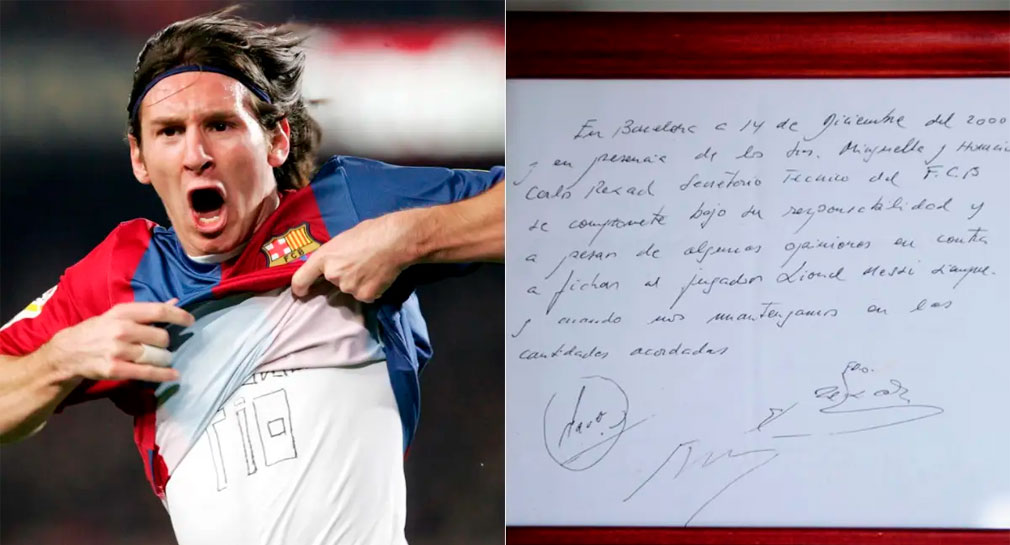 FCB
TIO
En Barcelona a 14 de Diciembre del 2000
y en presencia de los Sres. Minguella y Horacio
Carlos Rexach Secretario Tecnico del F.C.B
se compromete bajo su responsabilidad y
a pesar de algunas opiniones en contra
a fichar al jugador Lionel Messi siempre
y cuando nos mantengamos en las
cantidades acordadas